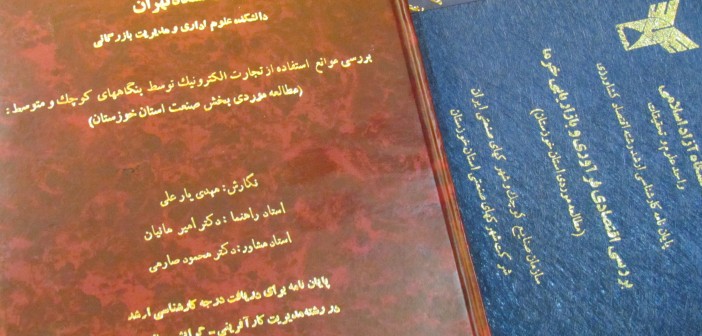 تهران
دانشکده علوم اداری و مدیریت بازرگانی
بررسی موانع استفاده از تجارت الکترونیک توسط بنگاههای کوچک و متوسط :
(مطالعه موردی بخش صنعت استان خوزستان)
نگارش: مهدی یارعلی
استاد راهنما : دکتر امیر مانیان
استاد مشاور: دکتر محمود صارمی
پایان نامه برای دریافت درجه کارشناسی ارشد
در رشته مدیریت کارآفرینی
آزاد اسلامی
واحد علوم و تحقیقات
پایان نامه کارشناسی ارشد رشته اقتصاد کشاورزی
بررسی اقتصادی فرآوری و بازاریابی خرما
(مطالعه موردی استان خوزستان)
سازمان صنایع کوچک و شهرکهای صنعتی ایران
شرکت شهرکهای صنعتی استان خوزستان